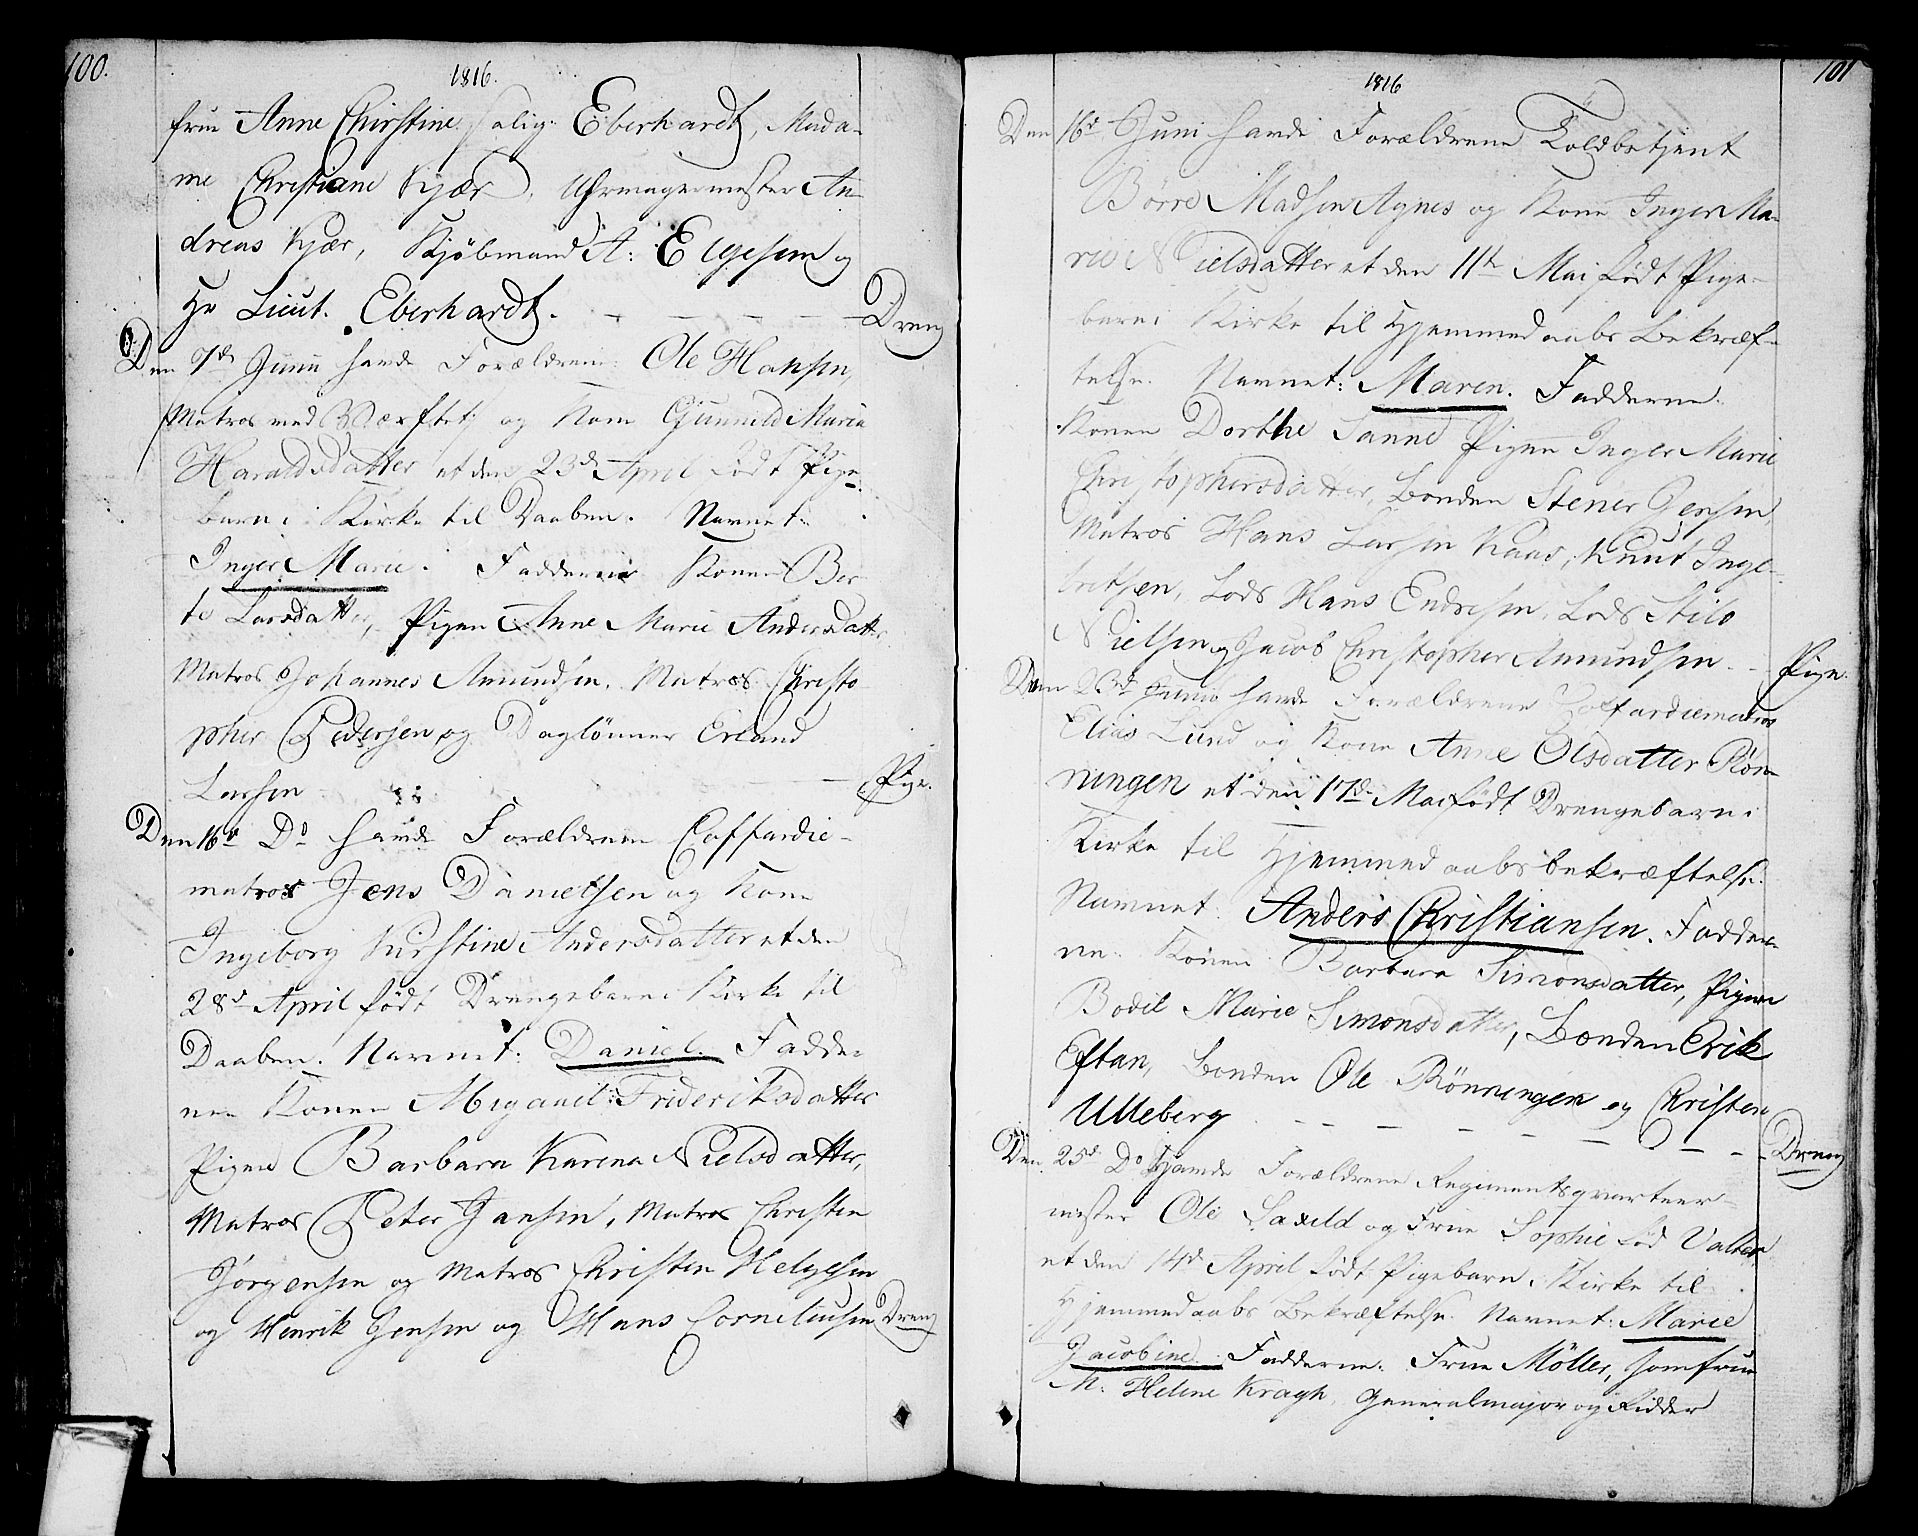 100.
1816.
frue Anne Chirstine salig: Eberhardt, Mada-
me Christiane Kjær, Uhrmagermester An-
dreas Kjær, Kjøbmand A: Elgesem og
Hr Lieut. Eberhardt. Dreng
Den 7d Junii havde Forældrene Ole Hansen,
Matros med Værftet og Kone Gunnild Maria
Haraldsdatter et den 23d April født Pige-
barn i Kirke til Daaben. Navnet
Inger Marie. Fadderne Konen Ber-
te Larsdatter, Pigen Anne Marie Andersdatter
Matros Johannes Amundsen, Matros Christo-
pher Pedersen og Daglönner Erland
Larsen Pige.
Den 16d Do havde Forældrene Coffardie-
matros Jens Danielsen og Kone
Ingeborg Kirstine Andersdatter et den
28d April født Drengebarn i Kirke til
Daaben. Navnet: Daniel. Fadder-
ne Konen Abigaiel Frideriksdatter
Pigen Barbara Karena Nielsdatter,
Matros Peter Jansen, Matros Christen
Jörgensen og Matros Christen Helgesen
og Henrik Jensen og Hans Corneliusen Dreng
101
1816
Den 16d Juni havde Forældrene Toldbetjent
Börre Madsen Agnes og Kone Inger Ma-
rie Nielsdatter et den 11te Mai født Pige-
barn i Kirke til Hjemmedaabs Bekræf-
telse. Navnet: Maren. Fadderne.
Konen Dorthe Sanne Pigen Inger Marie
Christophersdatter, Bonden Stener Jensen,
Matros Hans Larsen Kaas, Knut Inge-
britsen, Lods Hans Endresen, Lods Stilo
Nielsen og Jacob Christopher Amundsen. Pige.
Den 23d Junio havde Forældrene Coffardiematros
Elias Lund og Kone Anne Olsdatter Rön-
ningen et den 17d Mai født Drengebarn i
Kirke til Hjemmedaabsbekræftelse.
Navnet: Anders Christiansen. Fadder-
ne. Konen Barbara Simonsdatter, Pigen
Bodil Marie Simonsdatter, Bonden Erik
Eftan, Bonden Ole Rönningen og Christen
Ulleberg Dreng
Den 25d Do havde Forældrene Regimentsqvarteer-
mester Ole Saxild og Frue Sophie fød Valter,
et den 14d April født Pigebarn i Kirke til
Hjemmedaabs Bekræftelse. Navnet: Marie
Jacobine. Fadderne. Frue Möller, Jomfrue
M. Helene Kragh, Generalmajor og Ridder